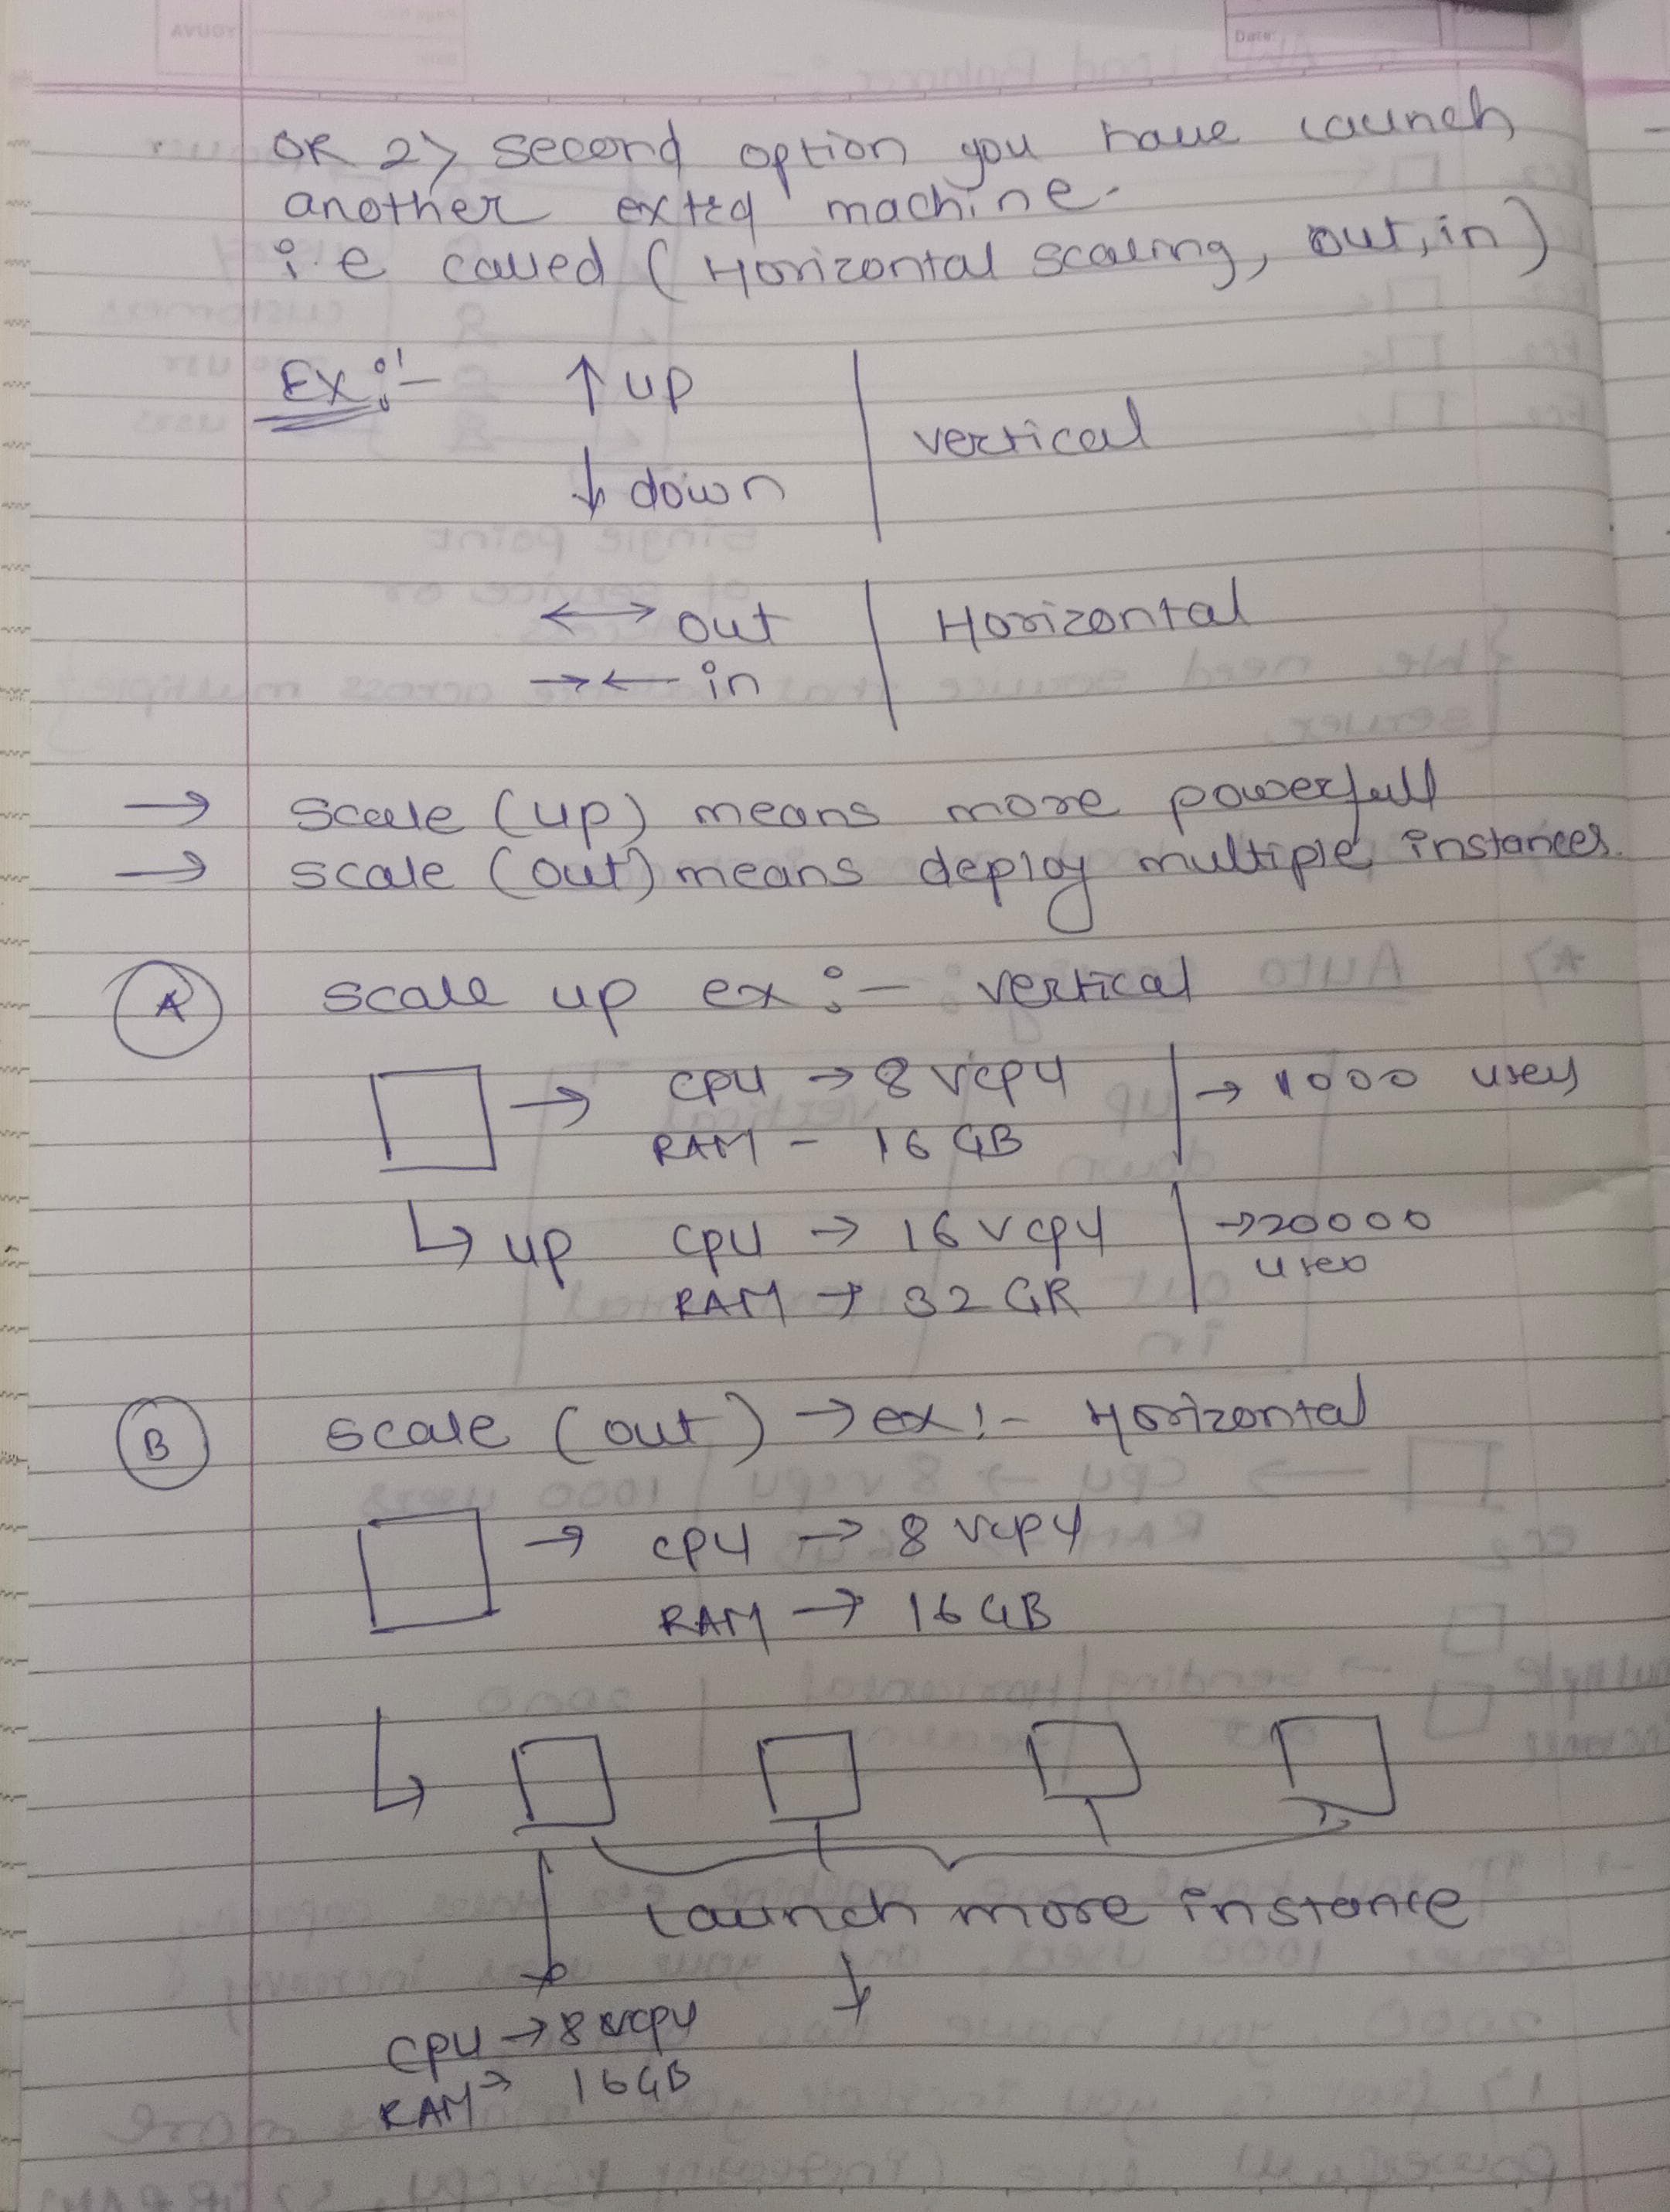 Date:
OR 2> second option you have launch
another extra machine.
i.e called (Horizontal scaling, out, in)
Ex:- ↑ up
vertical
↓ down
↔ out | Horizontal
→← in
→ scale (up) means more powerfull
→ scale (out) means deploy multiple instances.
A scale up ex:- vertical
→ CPU → 8 vcpu | → 1000 users
RAM - 16 GB
↳ up CPU → 16 vcpu | → 20000
RAM → 32 GB users
B scale (out) → ex:- Horizontal
→ CPU → 8 vcpu
RAM → 16 GB
Launch more instance
CPU → 8 vcpu
RAM → 16 GB